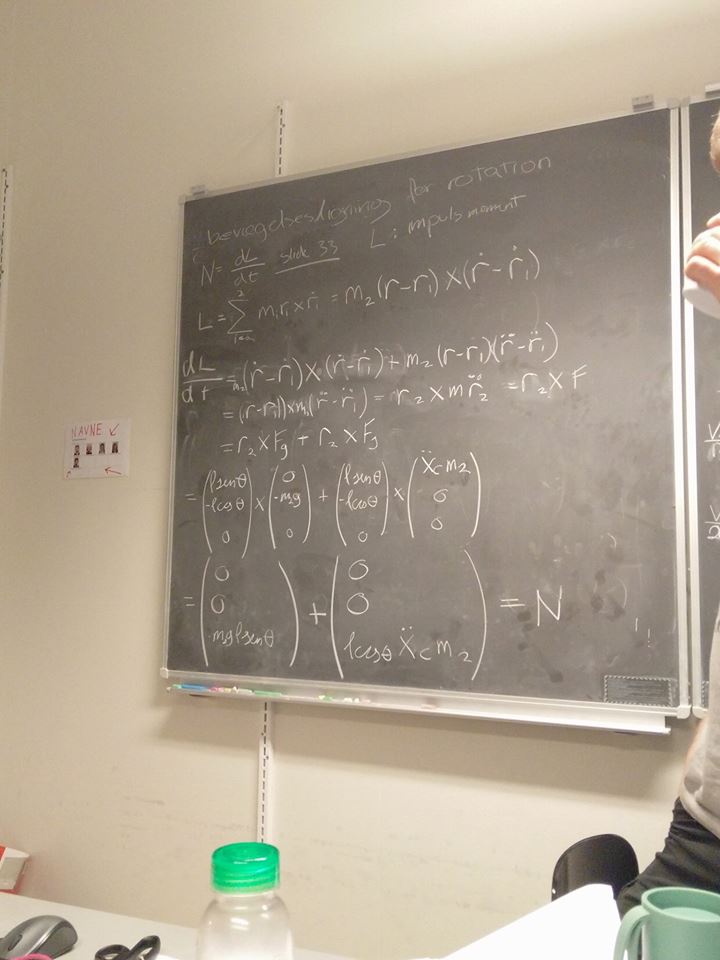 bevægelsesligning for rotation
N = dL/dt slide 33 L: impulsmoment
L = Σ mᵢrᵢ × ṙᵢ = m₂(r-r₁) × (ṙ - ṙ₁)
dL/dt = m₂(ṙ - ṙ₁) × (ṙ - ṙ₁) + m₂(r-r₁)(r̈ - r̈₁)
= (r-r₁) × m₂(r̈ - r̈₁) = r₂ × m r̈₂ = r₂ × F
= r₂ × Fg + r₂ × Fg
= (lsenθ, -lcosθ, 0) × (0, -m₂g, 0) + (lsenθ, -lcosθ, 0) × (ẍc m₂, 0, 0)
= (0, 0, -m₂glsenθ) + (0, 0, lcosθ ẍc m₂) = N
NAVNE